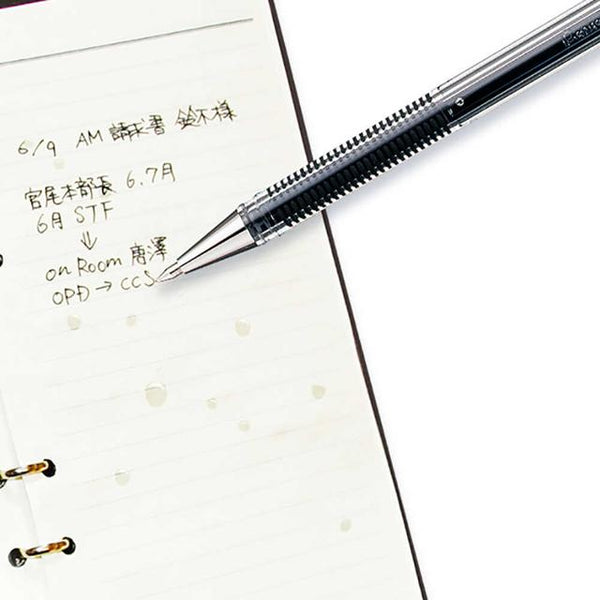 6/9 AM 請求書 鈴木様
宮尾本部長 6.7月
6月 STF
↓
on Room 唐澤
OPD → CCS